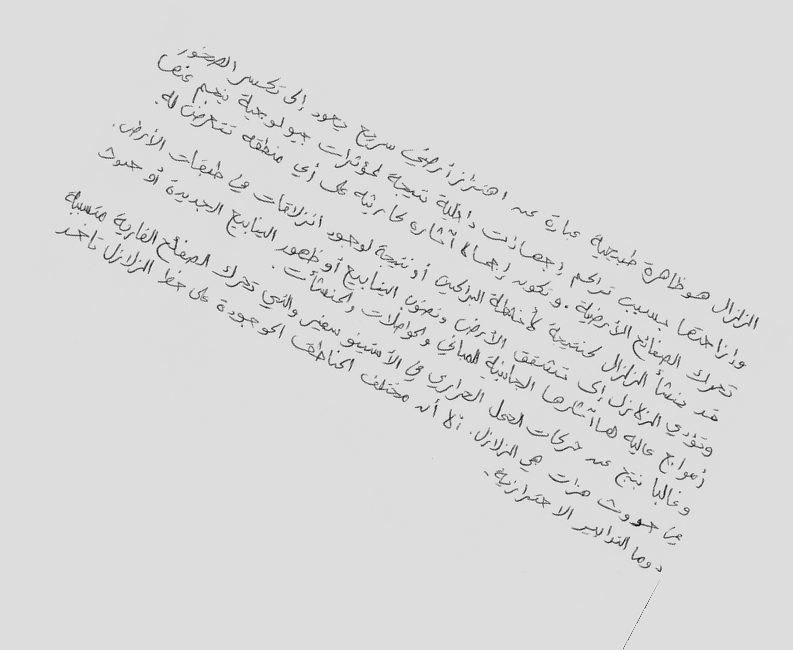 الزلزال هو ظاهرة طبيعية عبارة عن اهتزاز أرضي سريع يعود إلى تكسر الصخور
وإزاحتها بسبب تراكم إجهادات داخلية نتيجة لمؤثرات جيولوجية ينجم عنها
تحرك الصفائح الأرضية. وتكون إجمالا آثاره كارثية على أي منطقة تتعرض له.
قد ينشأ الزلزال كنتيجة لأنشطة البراكين أو نتيجة لوجود انزلاقات في طبقات الأرض.
وتؤدي الزلازل إلى تشقق الأرض ونضوب الينابيع أو ظهور الينابيع الجديدة أو حدوث
أمواج عالية هذا آثارها الجانبية المباني والمواصلات والمنشأت.
وغالبا ينتج عن حركات الحمل الحراري في الأستينو سفير والتي تحرك الصفائح القارية متسببة
في حدوث هزات هي الزلازل. ألا أن مختلف المناطق الموجودة على خط الزلازل تأخذ
دوما التدابير الاحترازية.